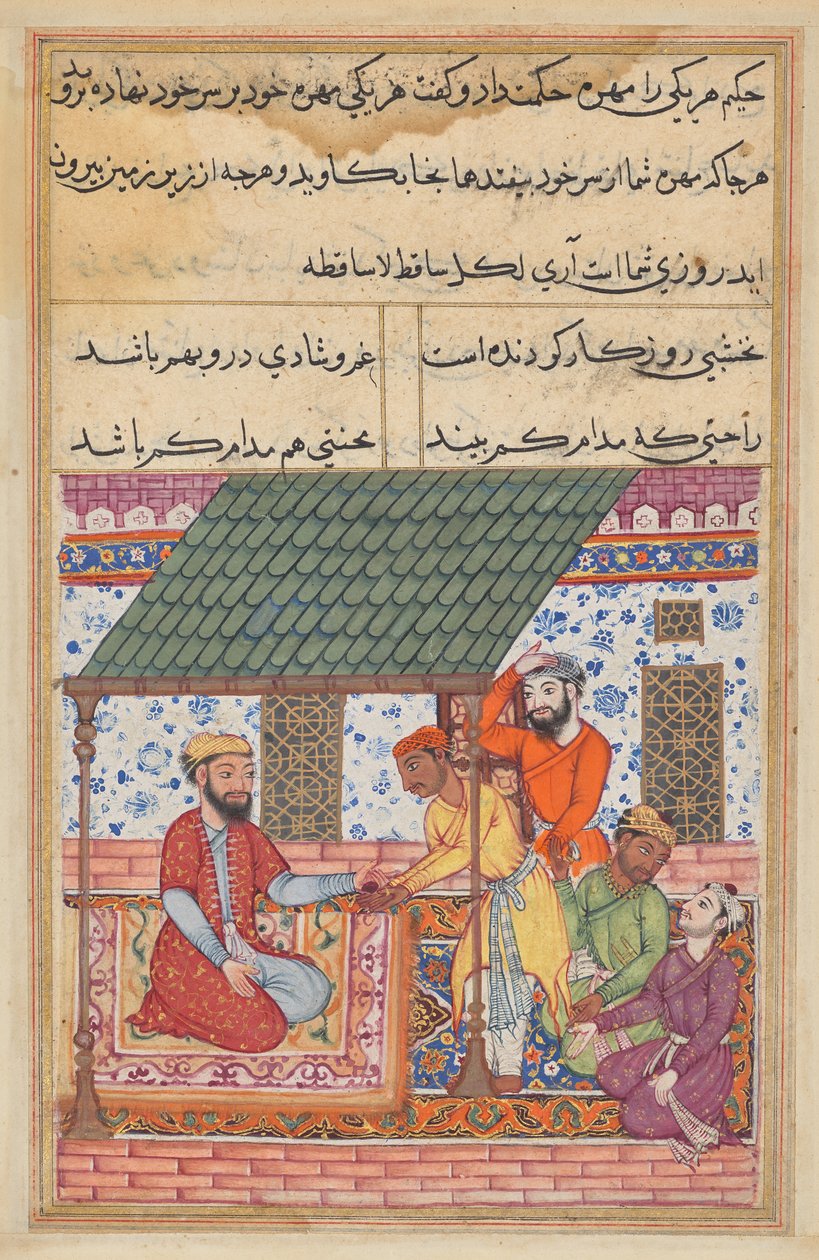 حکیم هر یکی را مهره حکمت داد و کفت هر یکی مهره خود بر سر خود نهاده بروید
هر جا که مهره شما از سر خود بیفتد همانجا بکاوید و هرجه از زیر زمین بیرون
اید روزی شما است آری لکل ساقط لاساقطه
نخشبی روزکار کردنده است غم و شادی درو بهم باشد
راحتی که مدام کم بیند محنتی هم مدام کم باشد